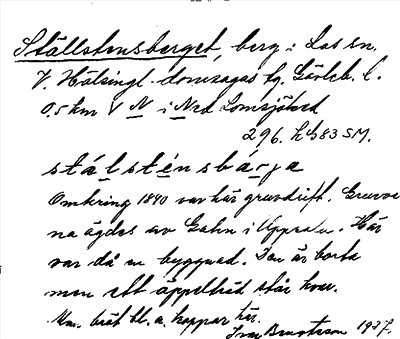 Ställstensberget, berg i Los sn,
V. Hälsingl. domsagas tg. Gävleb. l.
0,5 km V N i Nrd Lomsjötorp
296. h 583 SM.
stálsténsbárja
Omkring 1840 var här gruvdrift. Gruvor
na ägdes av Gahn i Uppsala. Här
var då en byggnad. Den är borta
men ett äppelträd står kvar.
Man bröt bl. a. koppar här.
1937.